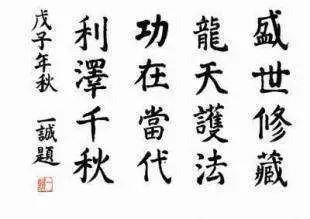 盛世修藏
龍天護法
功在當代
利澤千秋
戊子年秋 一誠題